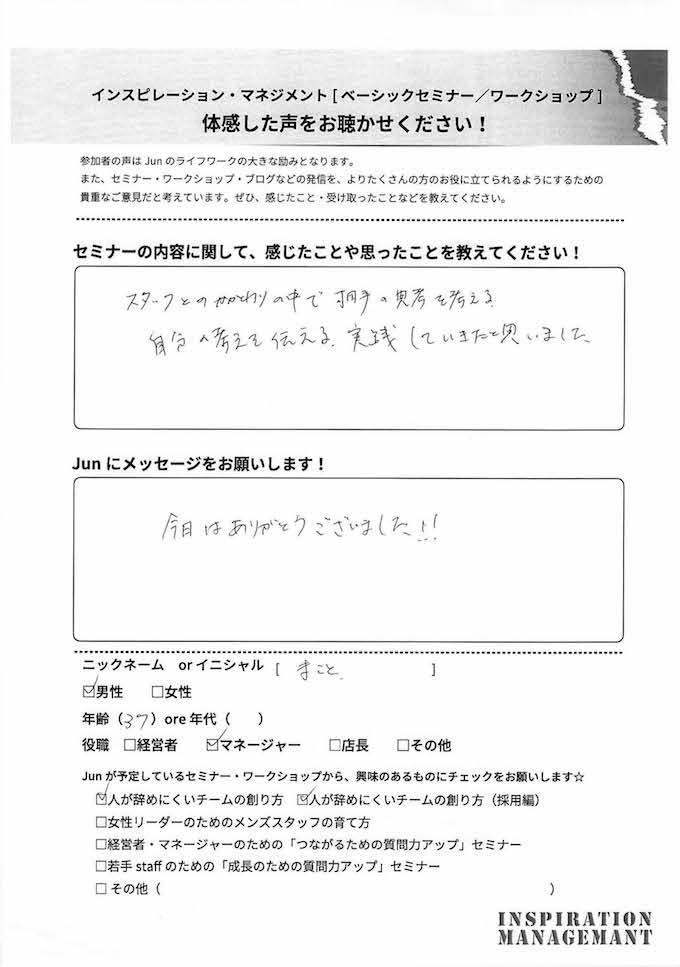 インスピレーション・マネジメント [ ベーシックセミナー／ワークショップ ]
体感した声をお聴かせください！
参加者の声は Jun のライフワークの大きな励みとなります。
また、セミナー・ワークショップ・ブログなどの発信を、よりたくさんの方のお役に立てられるようにするための
貴重なご意見だと考えています。ぜひ、感じたこと・受け取ったことなどを教えてください。
セミナーの内容に関して、感じたことや思ったことを教えてください！
スタッフとのかかわりの中で 相手の思考を考える
自分の考えを伝える、実践していきたと思いました
Jun にメッセージをお願いします！
今日はありがとうございました!!
ニックネーム or イニシャル [ まこと ]
☑男性 □女性
年齢（37）ore 年代（ ）
役職 □経営者 ☑マネージャー □店長 □その他
Jun が予定しているセミナー・ワークショップから、興味のあるものにチェックをお願いします☆
☑人が辞めにくいチームの創り方 ☑人が辞めにくいチームの創り方（採用編）
□女性リーダーのためのメンズスタッフの育て方
□経営者・マネージャーのための「つながるための質問力アップ」セミナー
□若手 staff のための「成長のための質問力アップ」セミナー
□ その他（ ）
INSPIRATION
MANAGEMANT